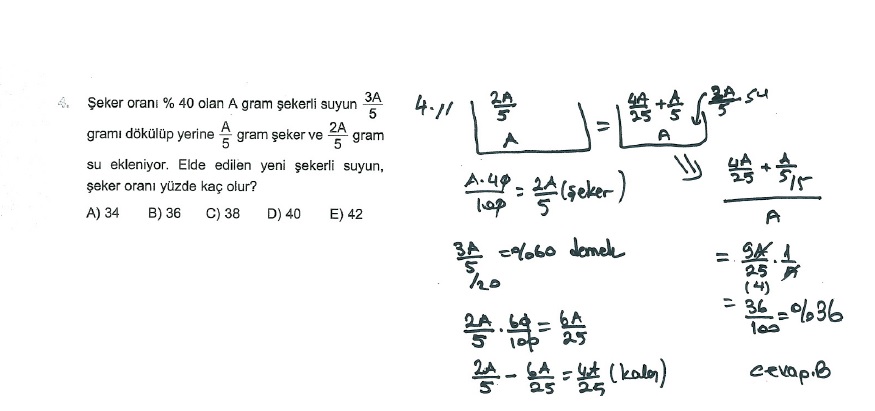 4. Şeker oranı % 40 olan A gram şekerli suyun 3A/5
gramı dökülüp yerine A/5 gram şeker ve 2A/5 gram
su ekleniyor. Elde edilen yeni şekerli suyun,
şeker oranı yüzde kaç olur?
A) 34 B) 36 C) 38 D) 40 E) 42
4.// 2A/5 A = 4A/25 + A/5 A 2A/5 su
A.40/100 = 2A/5 (şeker)
3A/5 = %60 demek
/20
2A/5 . 60/100 = 6A/25
2A/5 - 6A/25 = 4A/25 (kalan)
4A/25 + A/5 /5
A
= 9A/25 . 1/A
(4)
= 36/100 = %36
cevap.B